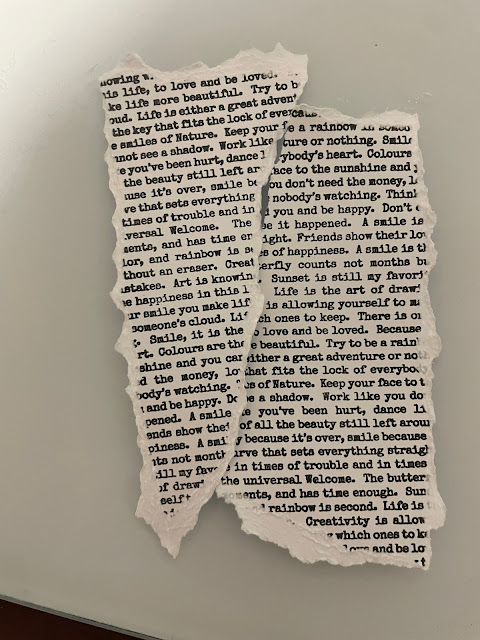 nowing w
is life, to love and be loved.
ke life more beautiful. Try to b
oud. Life is either a great advent
the key that fits the lock of ever
e smiles of Nature. Keep your f
nnot see a shadow. Work like
e you've been hurt, dance l
the beauty still left ar
use it's over, smile be
ve that sets everything
times of trouble and in
versal Welcome. The
ments, and has time en
ior, and rainbow is se
thout an eraser. Creat
stakes. Art is knowin
e happiness in this l
ur smile you make lif
someone's cloud. Lif
Smile, it is the
rt. Colours are the
shine and you can
d the money, lo
body's watching.
and be happy. Do
pened. A smile
ends show thei
piness. A smil
ts not month
ill my favo
of drawi
self t
becaus
e a rainbow in someo
ture or nothing. Smile
ybody's heart. Colours
ace to the sunshine and y
ou don't need the money, l
nobody's watching. Think
d you and be happy. Don't c
se it happened. A smile is
ight. Friends show their lo
es of happiness. A smile is th
terfly counts not months bu
Sunset is still my favori
Life is the art of drawi
is allowing yourself to ma
ch ones to keep. There is on
o love and be loved. Because
e beautiful. Try to be a rain
either a great adventure or not
that fits the lock of everybody
es of Nature. Keep your face to t
e a shadow. Work like you do
e you've been hurt, dance li
of all the beauty still left arou
y because it's over, smile because
urve that sets everything straigh
in times of trouble and in times
the universal Welcome. The butter
oments, and has time enough. Sun
rainbow is second. Life is
Creativity is allow
which ones to ke
love and be lo